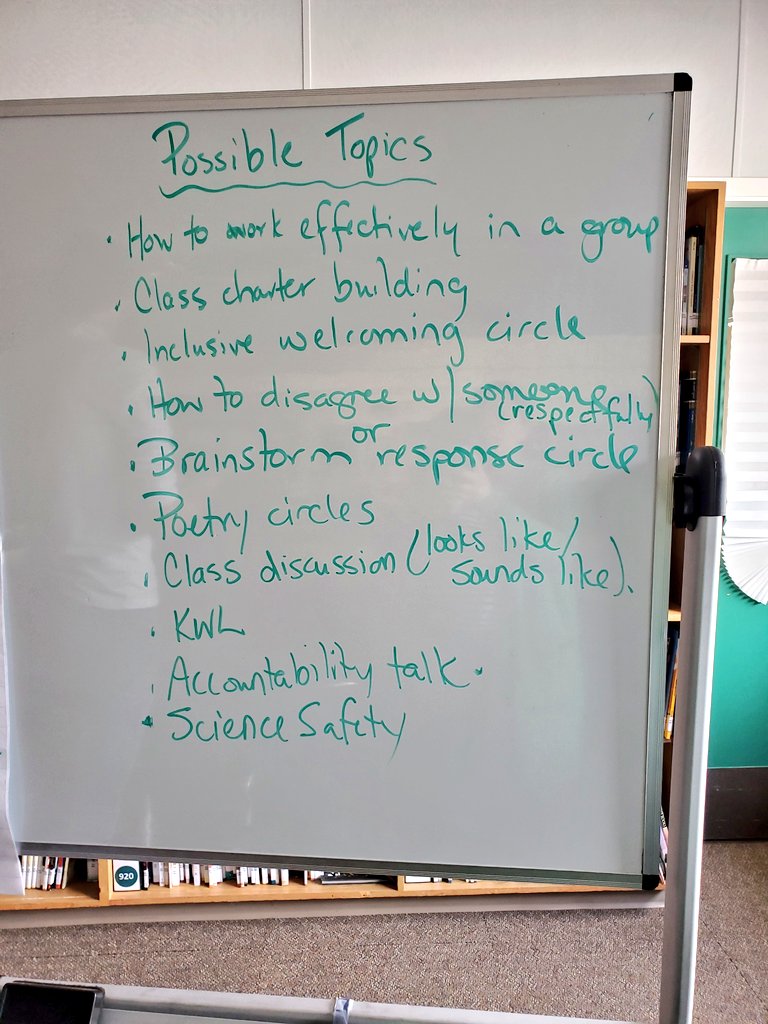 Possible Topics
· How to work effectively in a group
· Class charter building
· Inclusive welcoming circle
· How to disagree w/ someone (respectfully)
· Brainstorm or response circle
· Poetry circles
· Class discussion (looks like/
sounds like).
· KWL
· Accountability talk.
· Science Safety
920